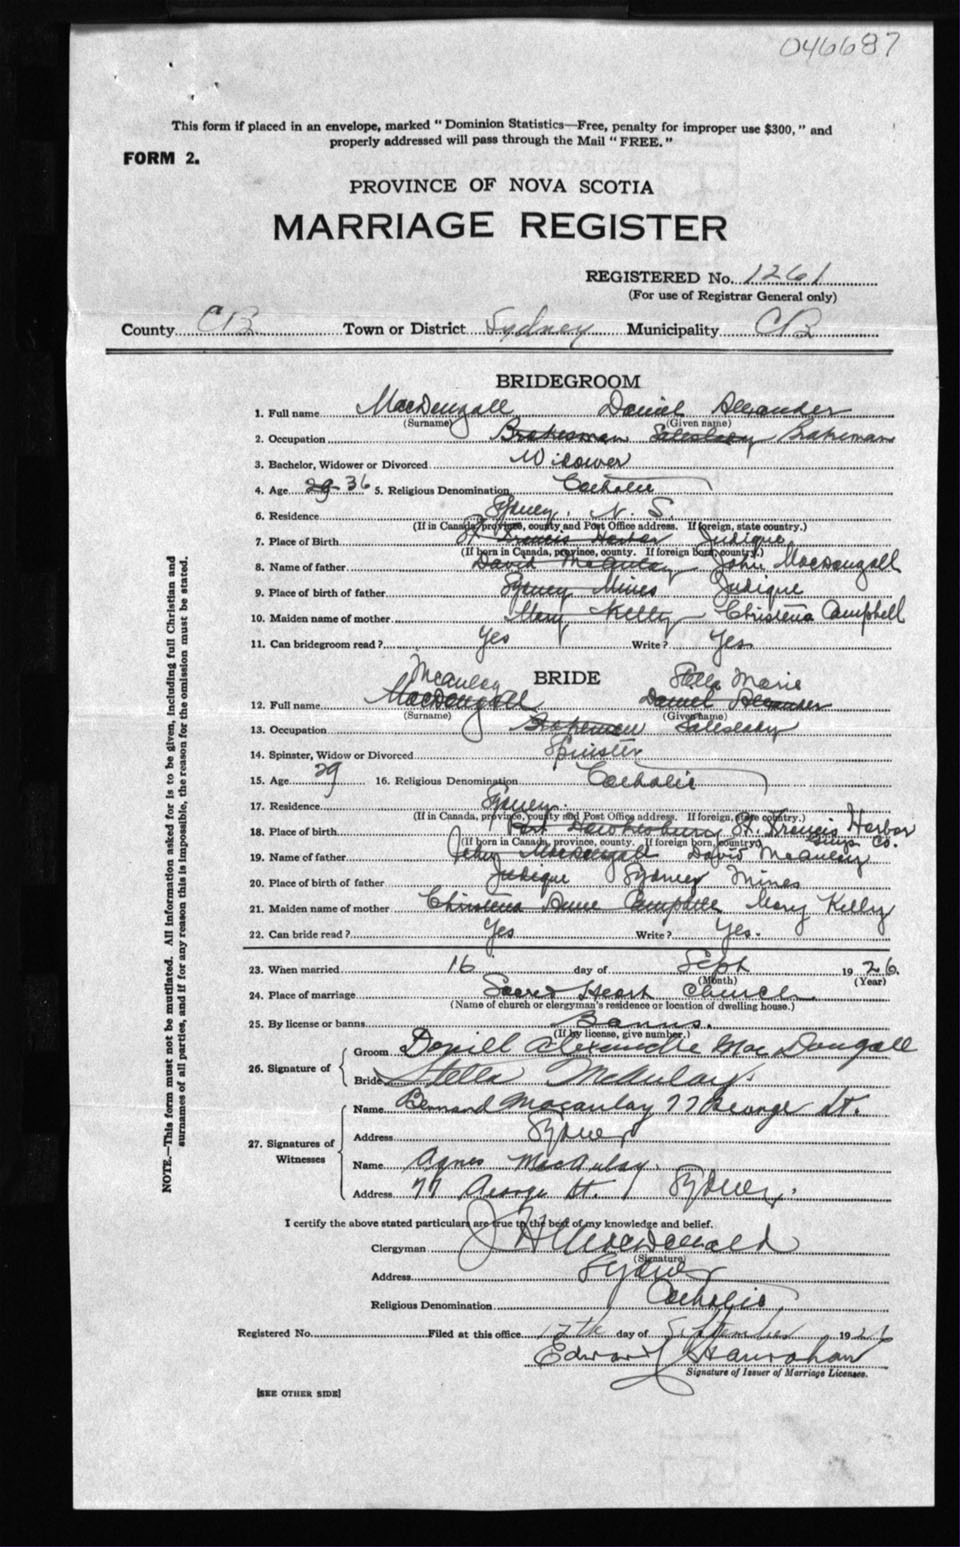 046687
This form if placed in an envelope, marked "Dominion Statistics—Free, penalty for improper use $300," and
properly addressed will pass through the Mail "FREE."
FORM 2.
PROVINCE OF NOVA SCOTIA
MARRIAGE REGISTER
REGISTERED No. 1261
(For use of Registrar General only)
County CB Town or District Sydney Municipality CB
BRIDEGROOM
1. Full name MacDougall Daniel Alexander
(Surname) (Given name)
2. Occupation Brakesman Saleslady Brakeman
3. Bachelor, Widower or Divorced Widower
4. Age 29 36 5. Religious Denomination Catholic
6. Residence Sydney, N. S.
(If in Canada, province, county and Post Office address. If foreign, state country.)
7. Place of Birth St Francis Harbor Judique
(If born in Canada, province, county. If foreign born, country.)
8. Name of father David McAulay John MacDougall
9. Place of birth of father Sydney Mines Judique
10. Maiden name of mother Mary Kelly Christena Campbell
11. Can bridegroom read? Yes Write? Yes
BRIDE
McAulay Stella Marie
12. Full name MacDougall Daniel Alexander
(Surname) (Given name)
13. Occupation Brakeman Saleslady
14. Spinster, Widow or Divorced Spinster
15. Age 29 16. Religious Denomination Catholic
17. Residence Sydney
(If in Canada, province, county and Post Office address. If foreign, state country.)
18. Place of birth Port Hawkesbury St. Francis Harbor
Guys Co.
(If born in Canada, province, county. If foreign born, country)
19. Name of father John MacDougald David McAulay
20. Place of birth of father Judique Sydney Mines
21. Maiden name of mother Christena Anne Campbell Mary Kelly
22. Can bride read? Yes Write? Yes.
23. When married 16 day of Sept 1926.
(Month) (Year)
24. Place of marriage Sacred Heart Church
(Name of church or clergyman's residence or location of dwelling house.)
25. By license or banns Banns.
(If by license, give number.)
26. Signature of
Groom Daniel Alexander MacDougall
Bride Stella McAulay.
27. Signatures of Witnesses
Name Bernard Macaulay 77 George St.
Address Sydney
Name Agnes MacAulay.
Address 77 George St. Sydney.
I certify the above stated particulars are true to the best of my knowledge and belief.
Clergyman J H MacDonald
(Signature)
Address Sydney
Religious Denomination Catholic
Registered No. Filed at this office 17th day of September 1926
Edward Hanrahan
Signature of Issuer of Marriage Licenses.
[SEE OTHER SIDE]
NOTE.—This form must not be mutilated. All information asked for is to be given, including full Christian and
surnames of all parties, and if for any reason this is impossible, the reason for the omission must be stated.